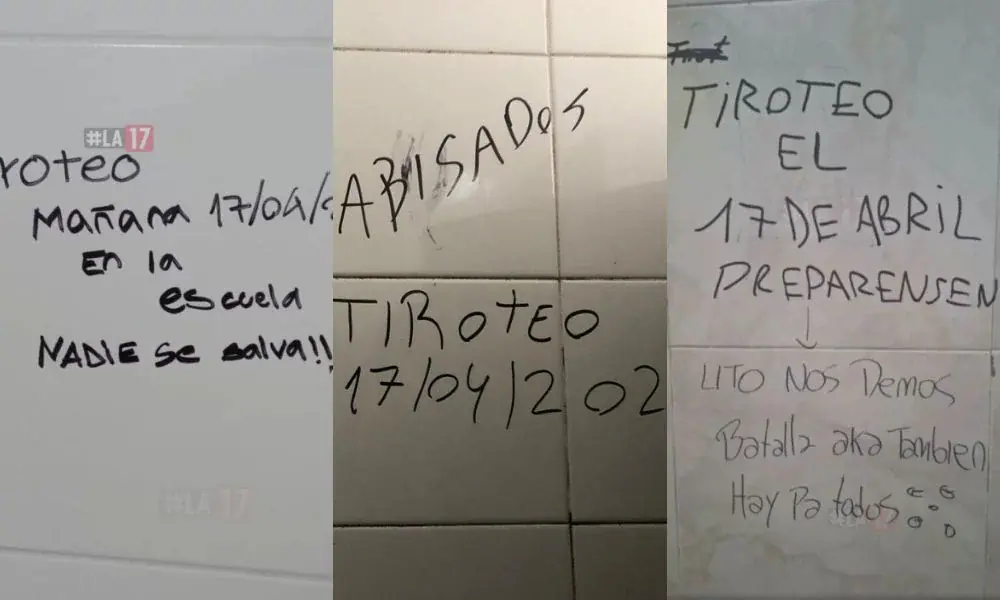 #LA17
roteo
Mañana 17/04/
En la
escuela
NADIE se salva!!
#LA17
ABISADOS
TIROTEO
17/04/202
TIROTEO
EL
17 DE ABRIL
PREPARENSEN
LITO NOS Demos
Batalla aka Tambien
Hay Pa todos